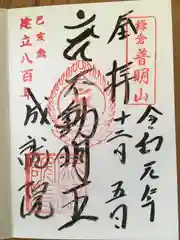 鎌倉
普明山
奉拝
令和元年
十二月五日
不動明王
成就院
己亥歳
建立八百年